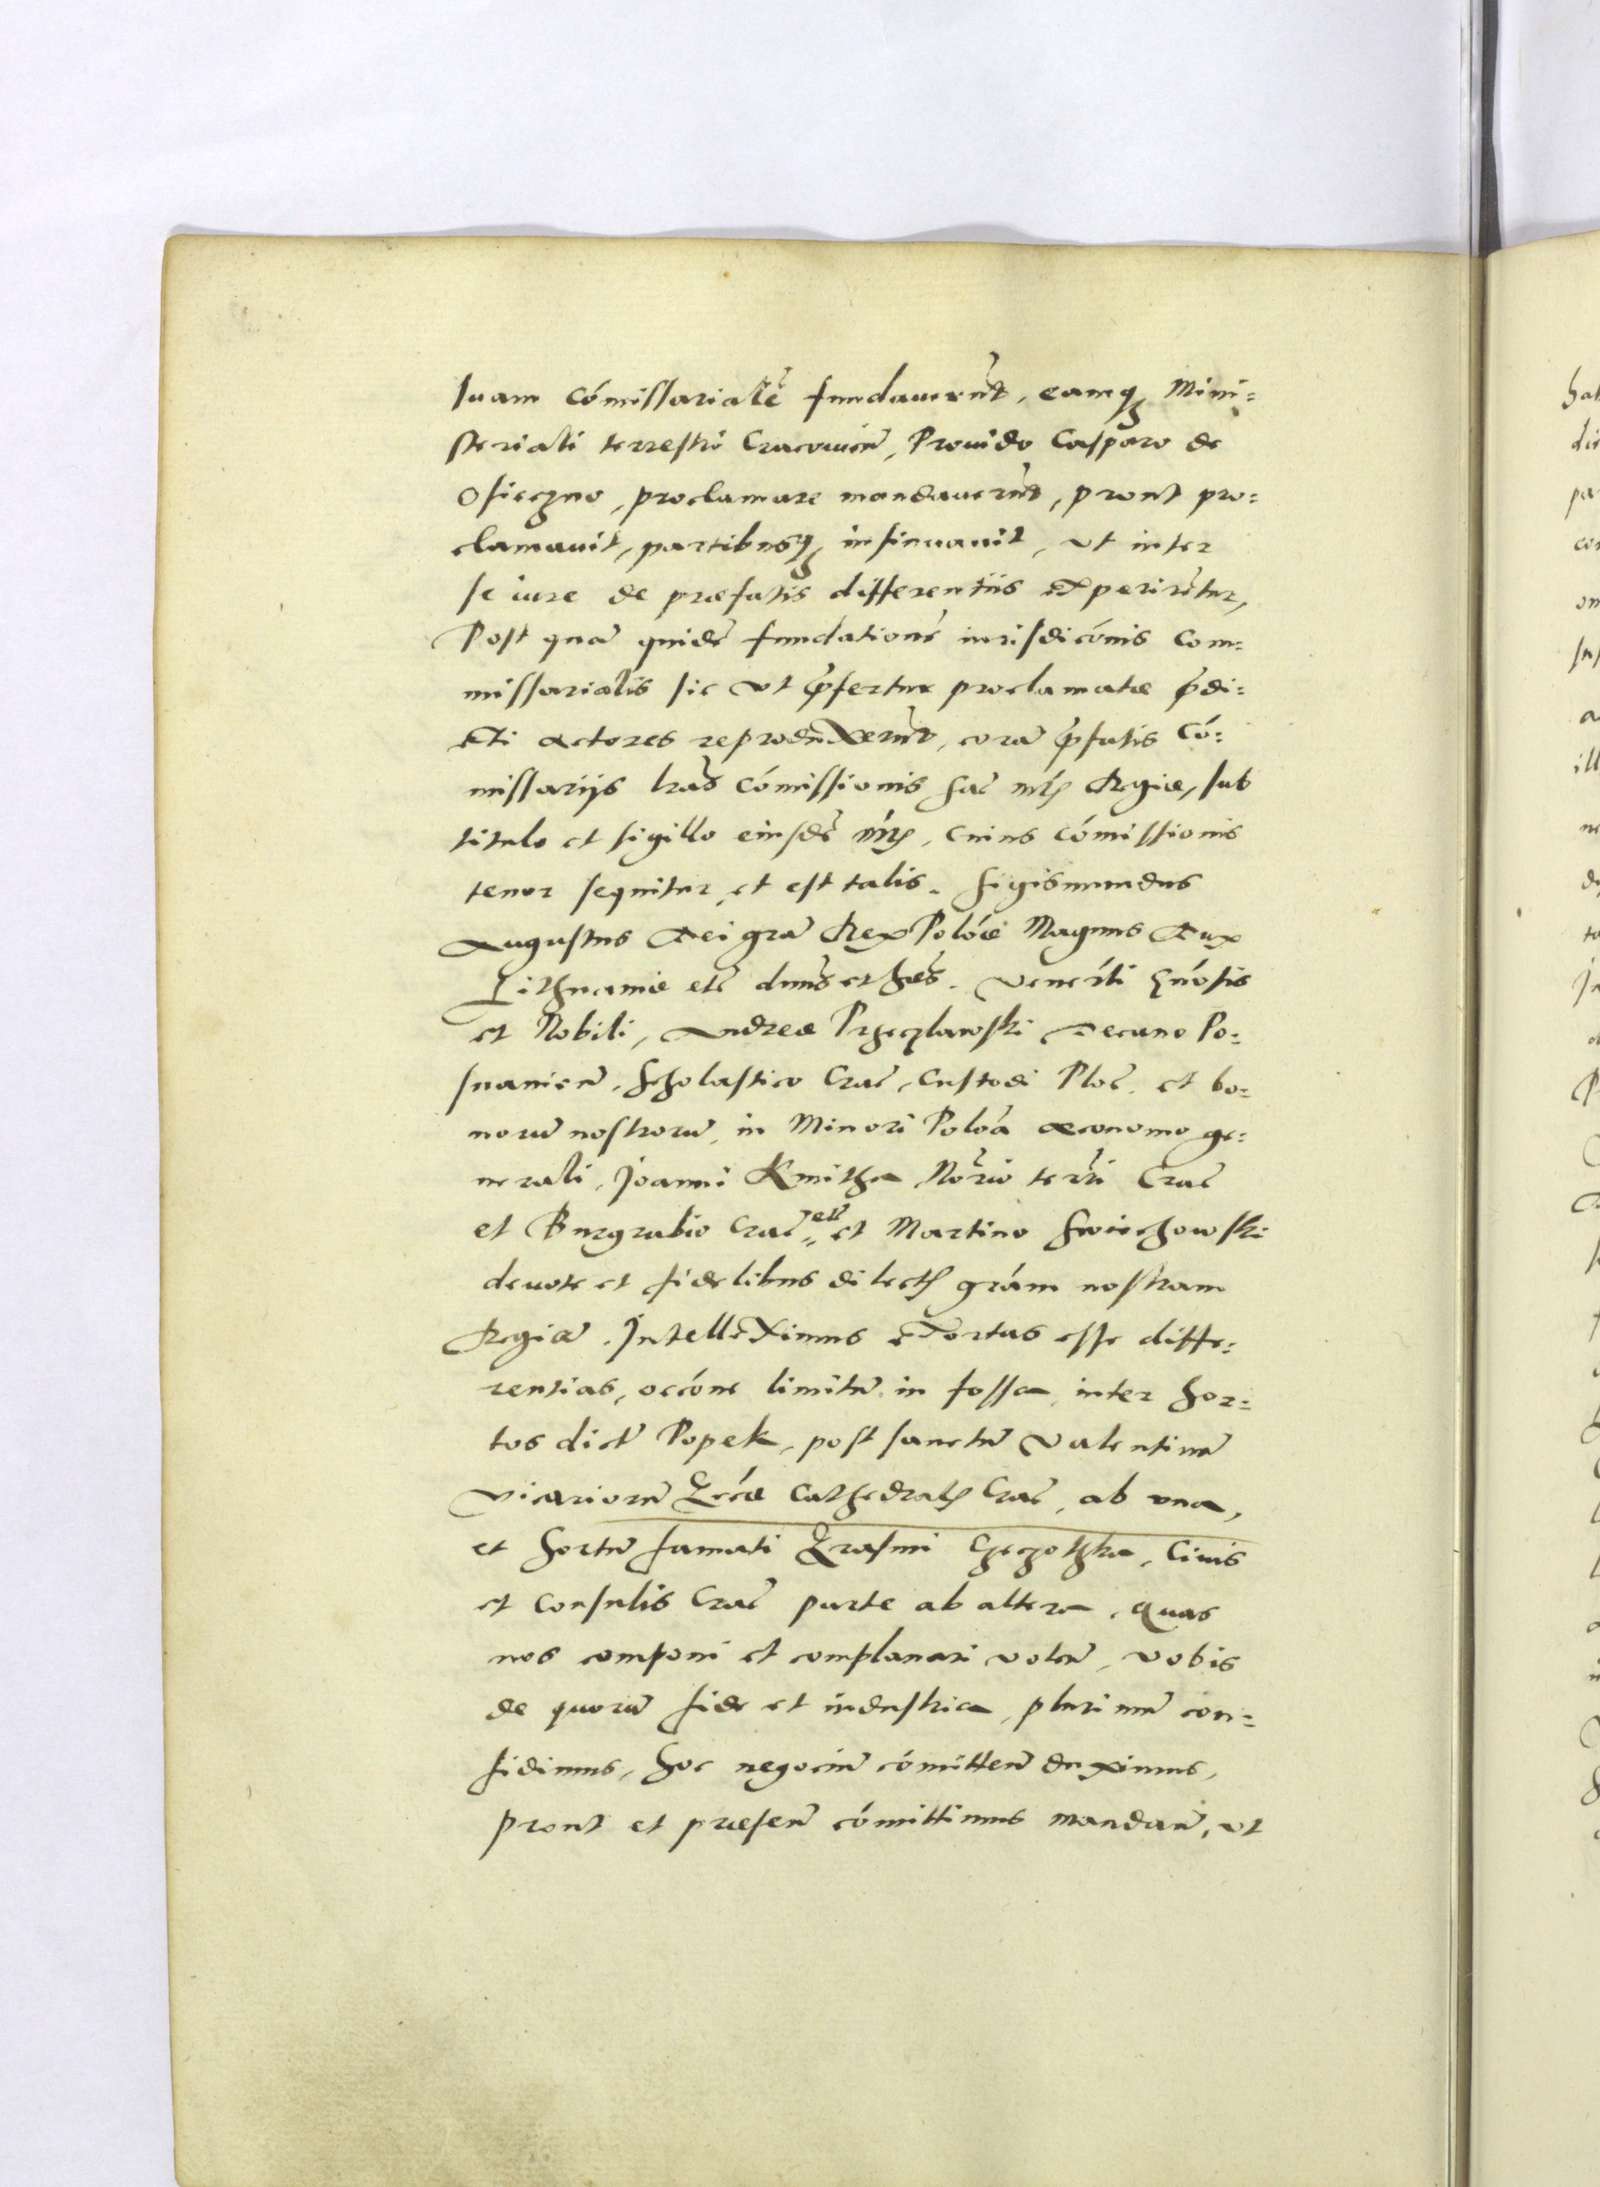 suam Cómissarialē fundaverūt, eamq̨ Mini=
steriali terrestri Cracovieñ, Provido Casparo de
Osieczno, proclamare mandaverūt, prout pro=
clamavit, partibusq̨ insinuavit, ut inter
se iure de præfatis differentiis experirētur,
Post quā quidē fundationē iurisdicónis Com=
missarialis sic ut p̄fertur proclamatæ p̄di=
cti actores reproduxerūt, corā p̄fatis Có=
missariis lrās Cómissionis Sac̄ Mtis Regiæ, sub
titulo et sigillo eiusdē Mtis, Cuius Cómissionis
tenor sequitur et est talis. Sigismundus
Augustus Dei gratia Rex Polóæ Magnus Dux
Lithuaniæ etc̄ dnūs et hæs. Venerlī Gnósis
et Nobili, Andreæ Przeczlawski Decano Po=
snanien̄, Scholastico Crac̄, Custodi Ploc̄. et bo=
norū nostrorū, in Minori Polóa œconomo ge=
nerali, Joanni Kmitha Notrio terrī Crac̄
et Burgrabio Crac̄ et Martino Swiechowski
devote et fidelibus dilectis grám nostram
Regiā. Intelleximus exortas esse diffe=
rentias, occóne limitū in fossa, inter hor=
tos dict̄ Popek, post sanctū Valentinū
Vicariorū Ecclæ Cathedralis Crac̄, ab una,
et hortū famati Erasmi Czeczothka, Civis
et Consulis Crac̄ parte ab altera, quas
nos componi et complanari volen̄, vobis
de quorū fide et industria, plurimū con=
fidimus, hoc negociū cómitten̄ duximus,
prout et præsen̄ cómittimus mandan̄, ut